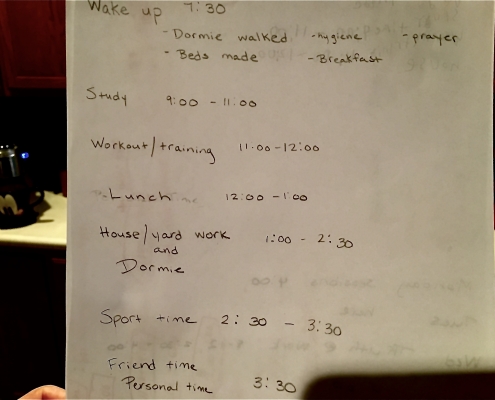 Wake up 7:30
- Dormie walked -hygiene -prayer
- Beds made - Breakfast
Study 9:00 - 11:00
Workout/training 11:00-12:00
Lunch 12:00 - 1:00
House/yard work 1:00 - 2:30
and
Dormie
Sport time 2:30 - 3:30
Friend time
Personal time 3:30